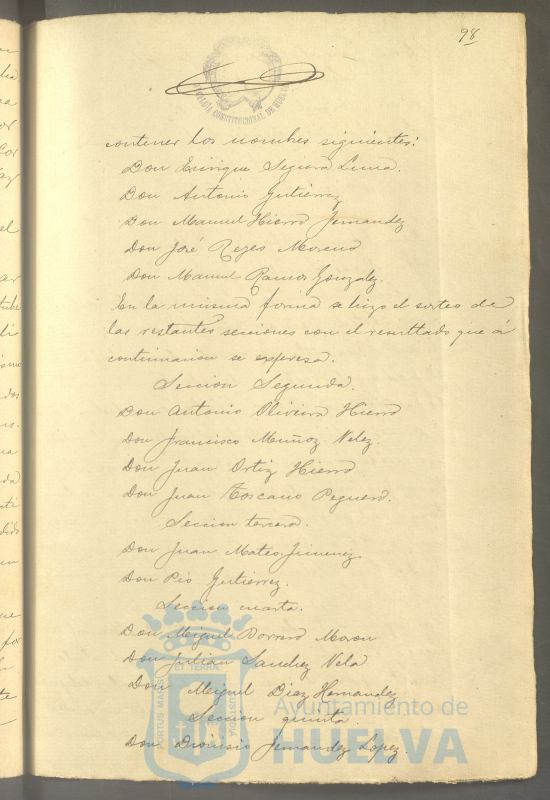 98
ALCALDIA CONSTITUCIONAL DE HUELVA
contener los nombres siguientes:
Don Enrique Segura Luna.
Don Antonio Gutiérrez
Don Manuel Hierro Fernandez
Don José Reyes Moreno
Don Manuel Ramos Gonzalez.
En la misma forma se hizo el sorteo de
las restantes secciones con el resultado que á
continuacion se espresa.
Seccion Segunda.
Don Antonio Oliveira Hierro
Don Francisco Muñoz Velez.
Don Juan Ortiz Hierro
Don Juan Toscano Peguero.
Seccion tercera.
Don Juan Mateo Jimenez
Don Pio Gutierrez.
Seccion cuarta.
Don Miguel Borrero Moron
Don Julian Sanchez Vela
Don Miguel Diaz Hernandez
Seccion quinta.
Don Dionisio Fernandez Lopez.
PORTUS MARIS ET TERRÆ CUSTODIA
Ayuntamiento de
HUELVA